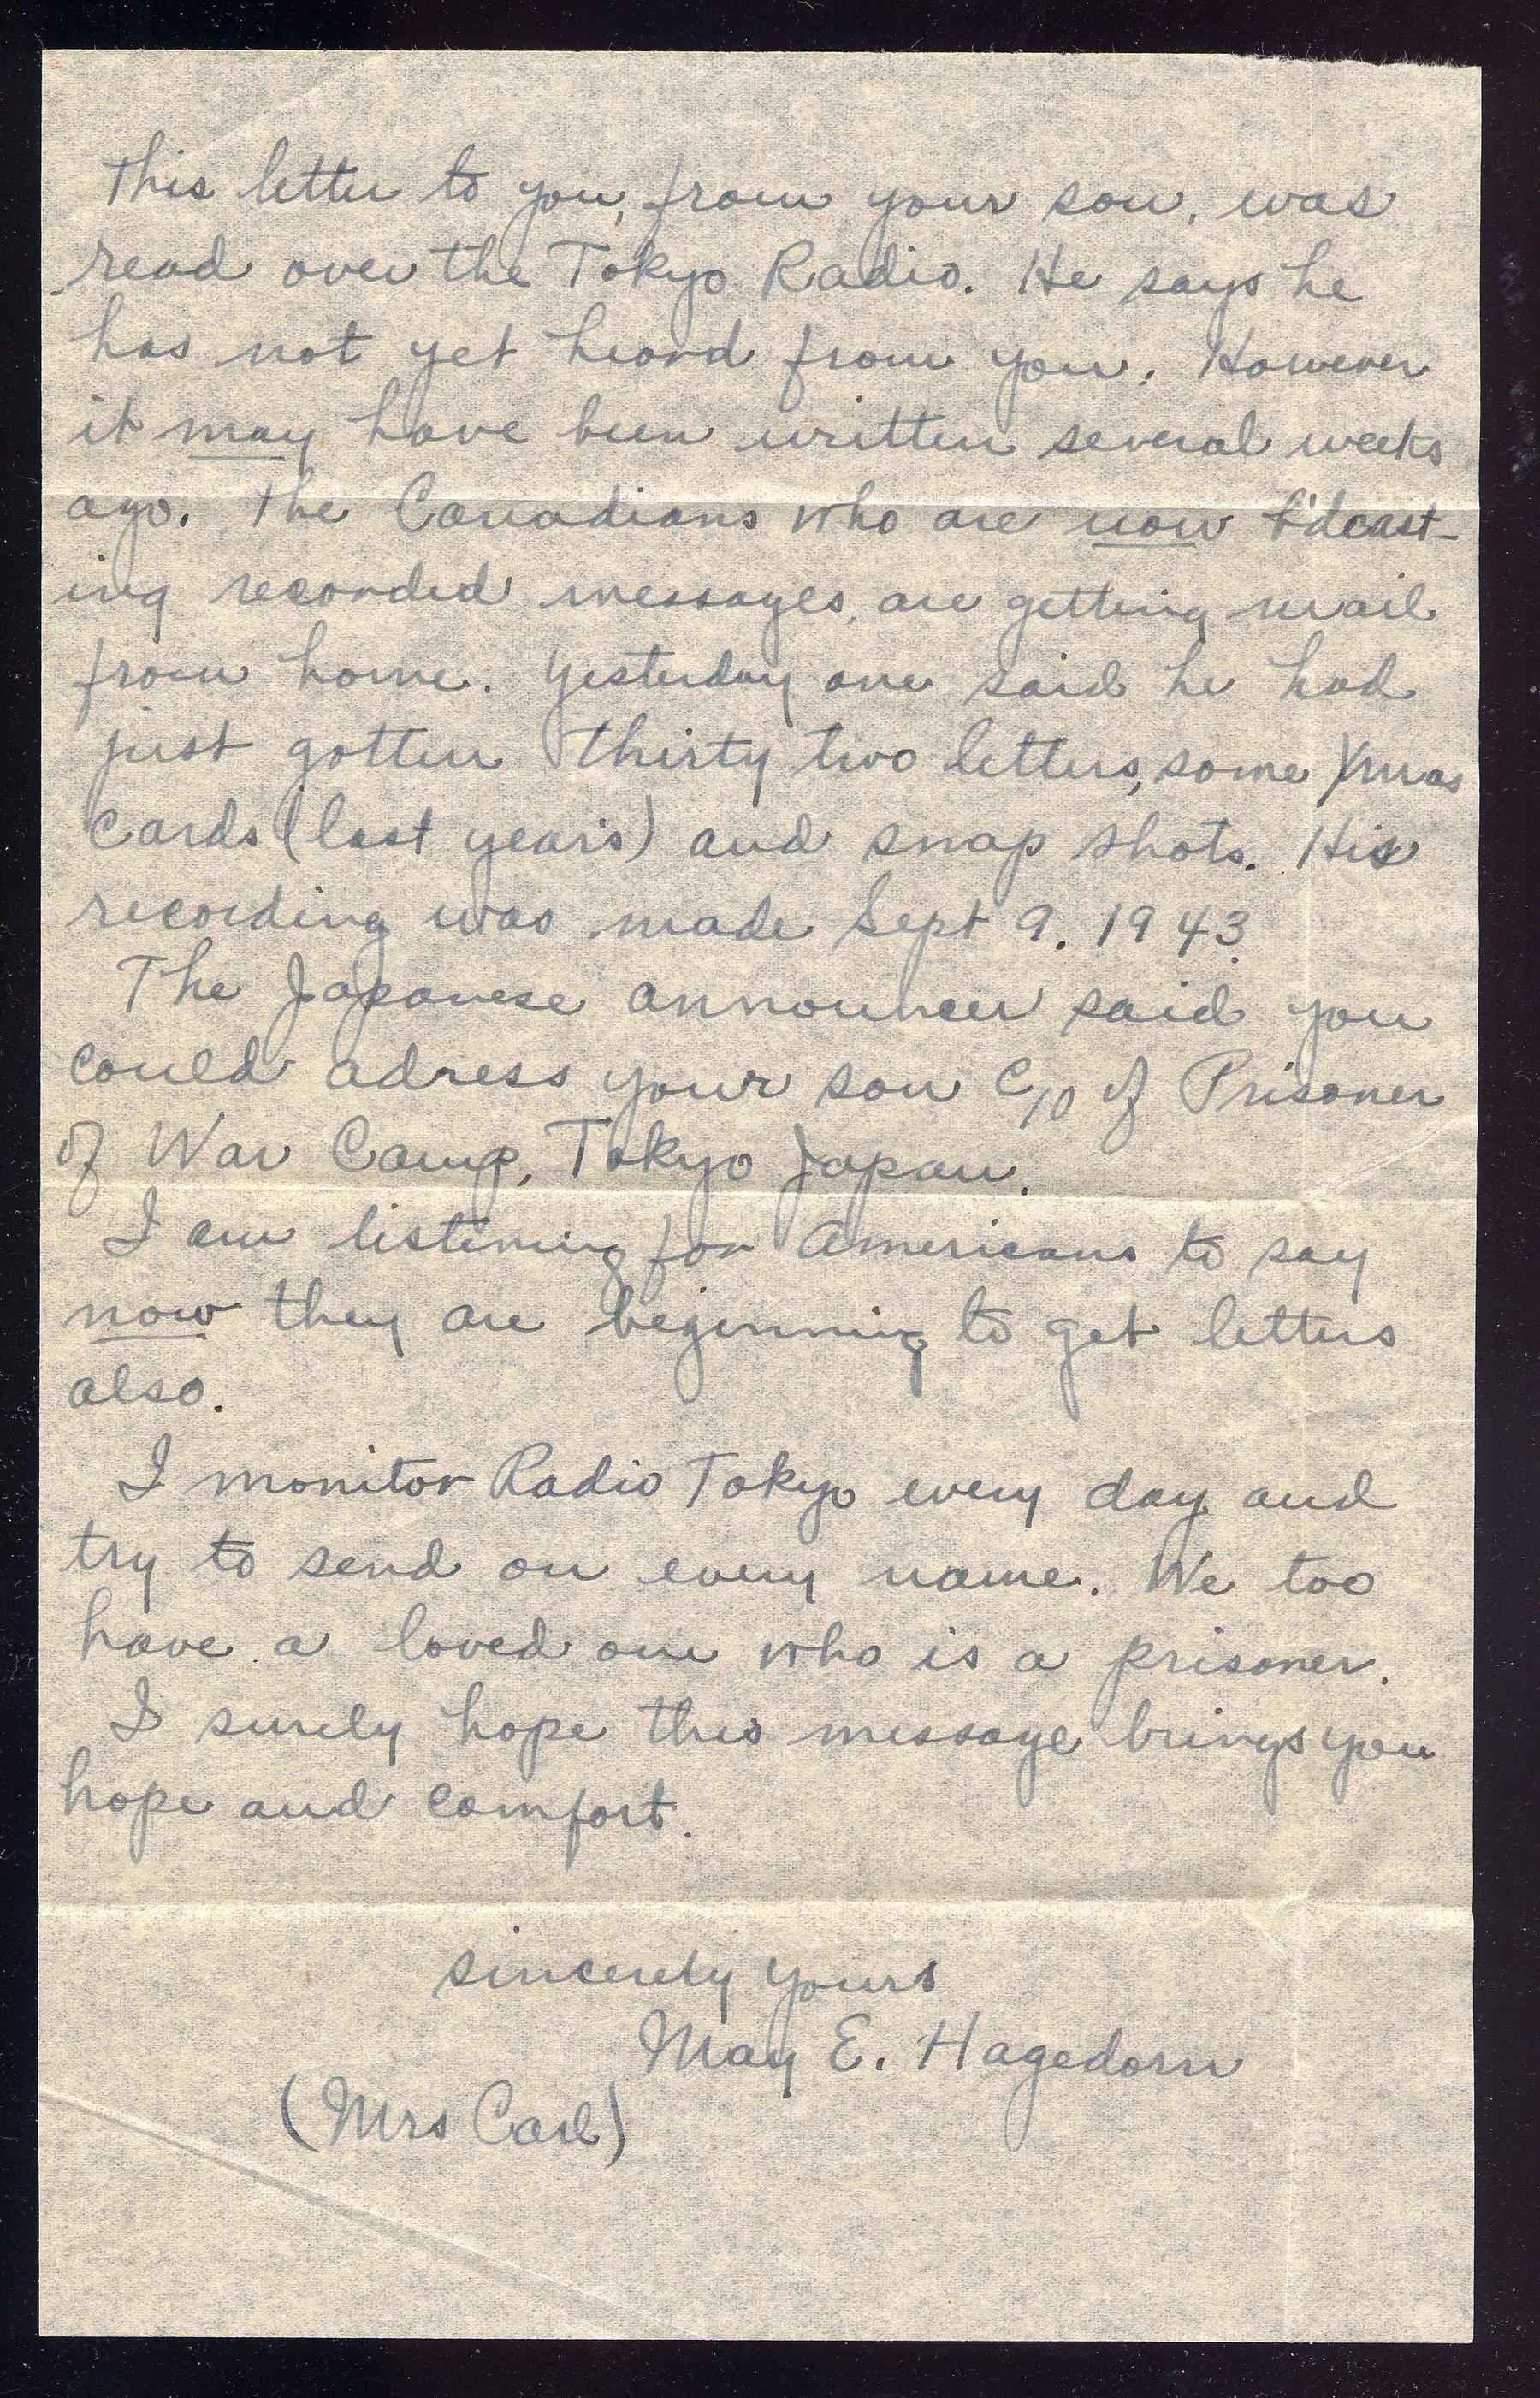 This letter to you, from your son, was
read over the Tokyo Radio. He says he
has not yet heard from you. However
it may have been written several weeks
ago. The Canadians who are now b'dcast-
ing recorded messages, are getting mail
from home. Yesterday one said he had
just gotten thirty two letters, some Xmas
cards (last year's) and snap shots. His
recording was made Sept 9. 1943.
The Japanese announcer said you
could adress your son c/o of Prisoner
of War Camp, Tokyo Japan.
I am listening for Americans to say
now they are beginning to get letters
also.
I monitor Radio Tokyo every day and
try to send on every name. We too
have a loved one who is a prisoner.
I surely hope this message brings you
hope and comfort.
sincerely yours
May E. Hagedorn
(Mrs Carl)